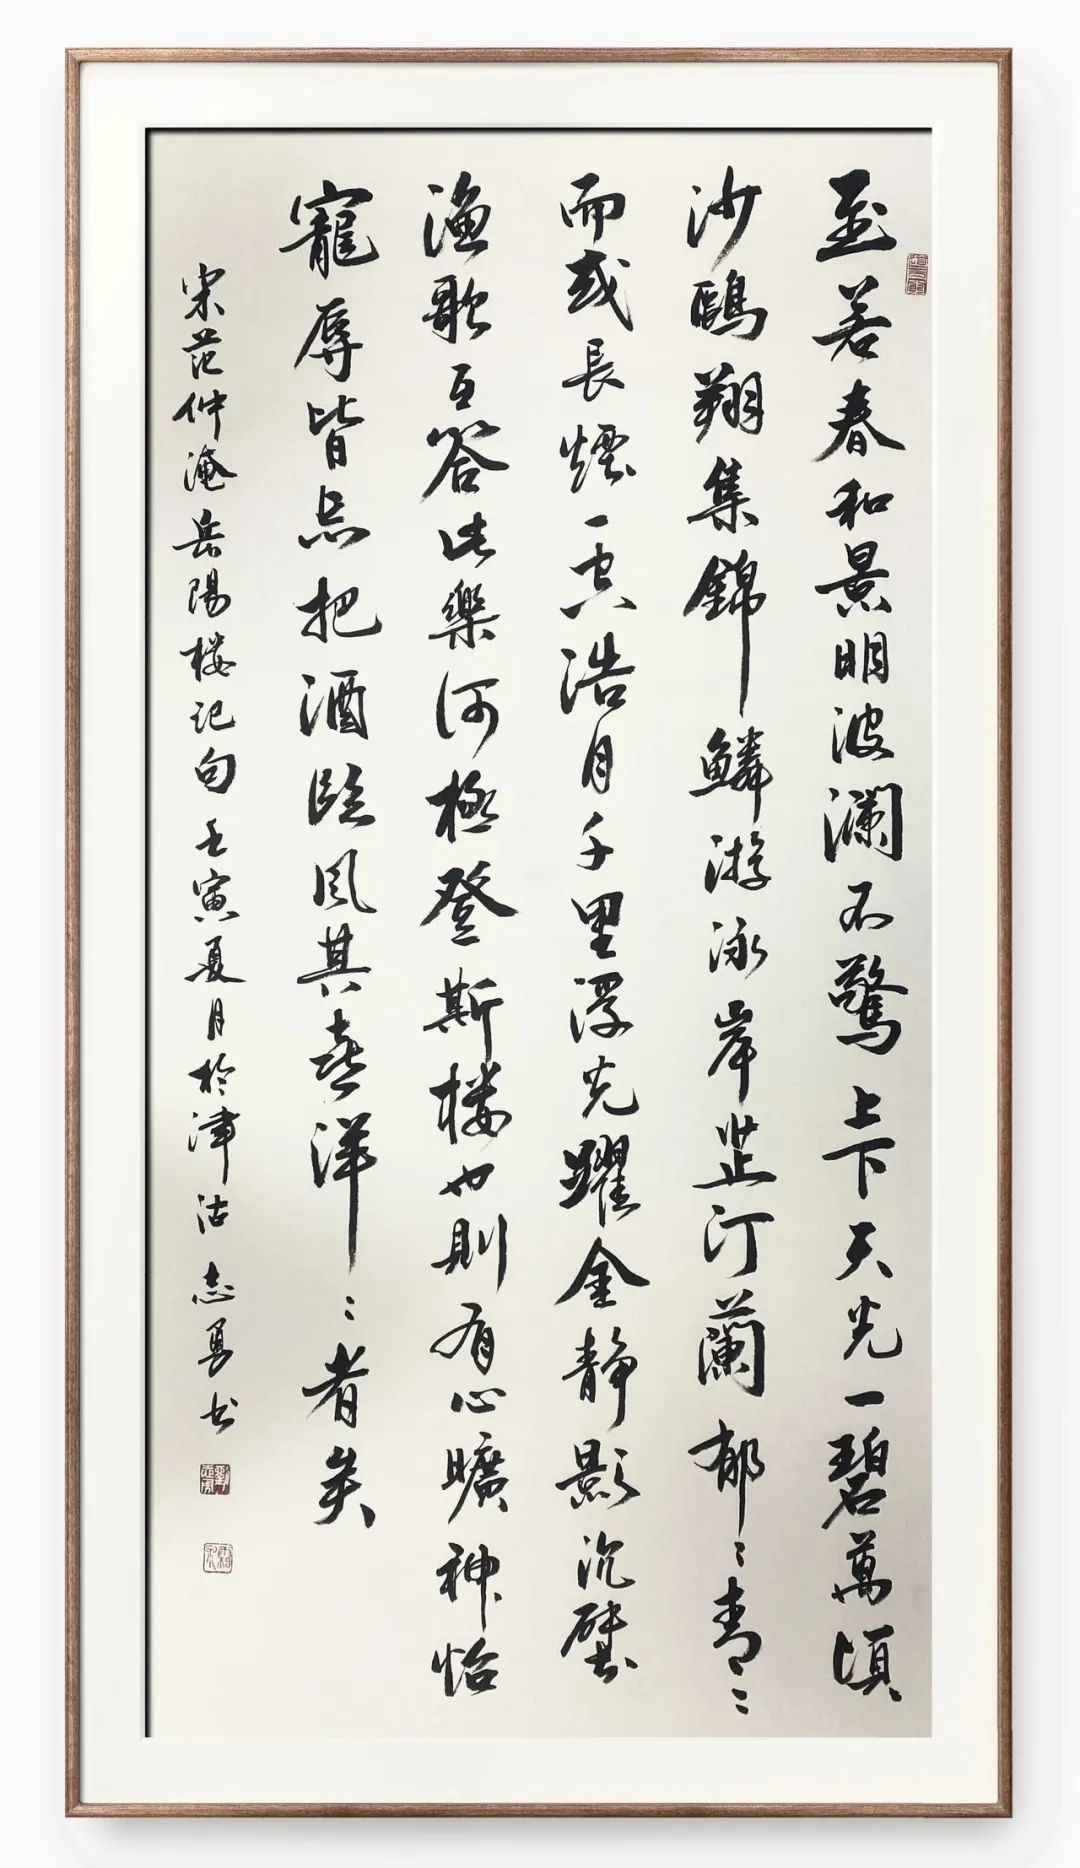 至若春和景明波瀾不驚上下天光一碧萬頃
沙鷗翔集錦鱗游泳岸芷汀蘭郁〻青〻
而或長煙一空浩月千里浮光躍金静影沉璧
漁歌互答此樂何極登斯楼也則有心曠神怡
寵辱皆忘把酒臨風其喜洋〻者矣
宋范仲淹岳陽楼记句壬寅夏月於津沽志勇书